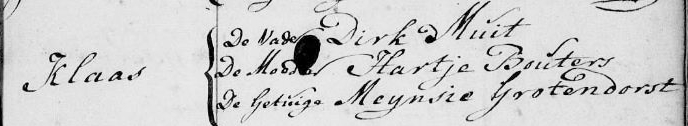 De Vader Dirk Muit
Klaas De Moeder Hartje Bouters
De Getuige Meynsie Grotendorst